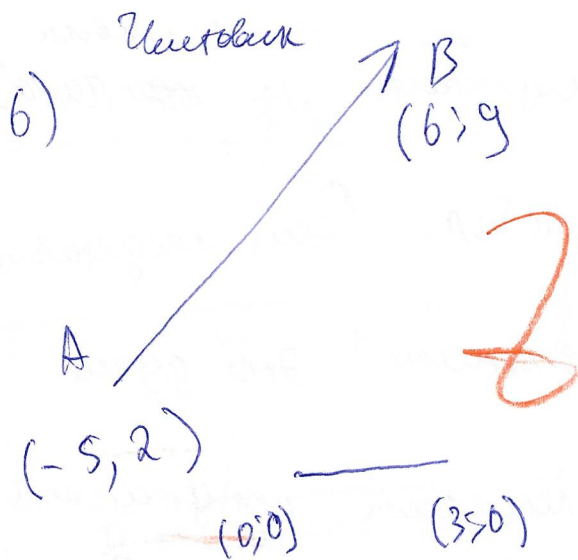 Чистовик
6)
B
(6;9
A
(-5,2)
(0;0)
(3;0)